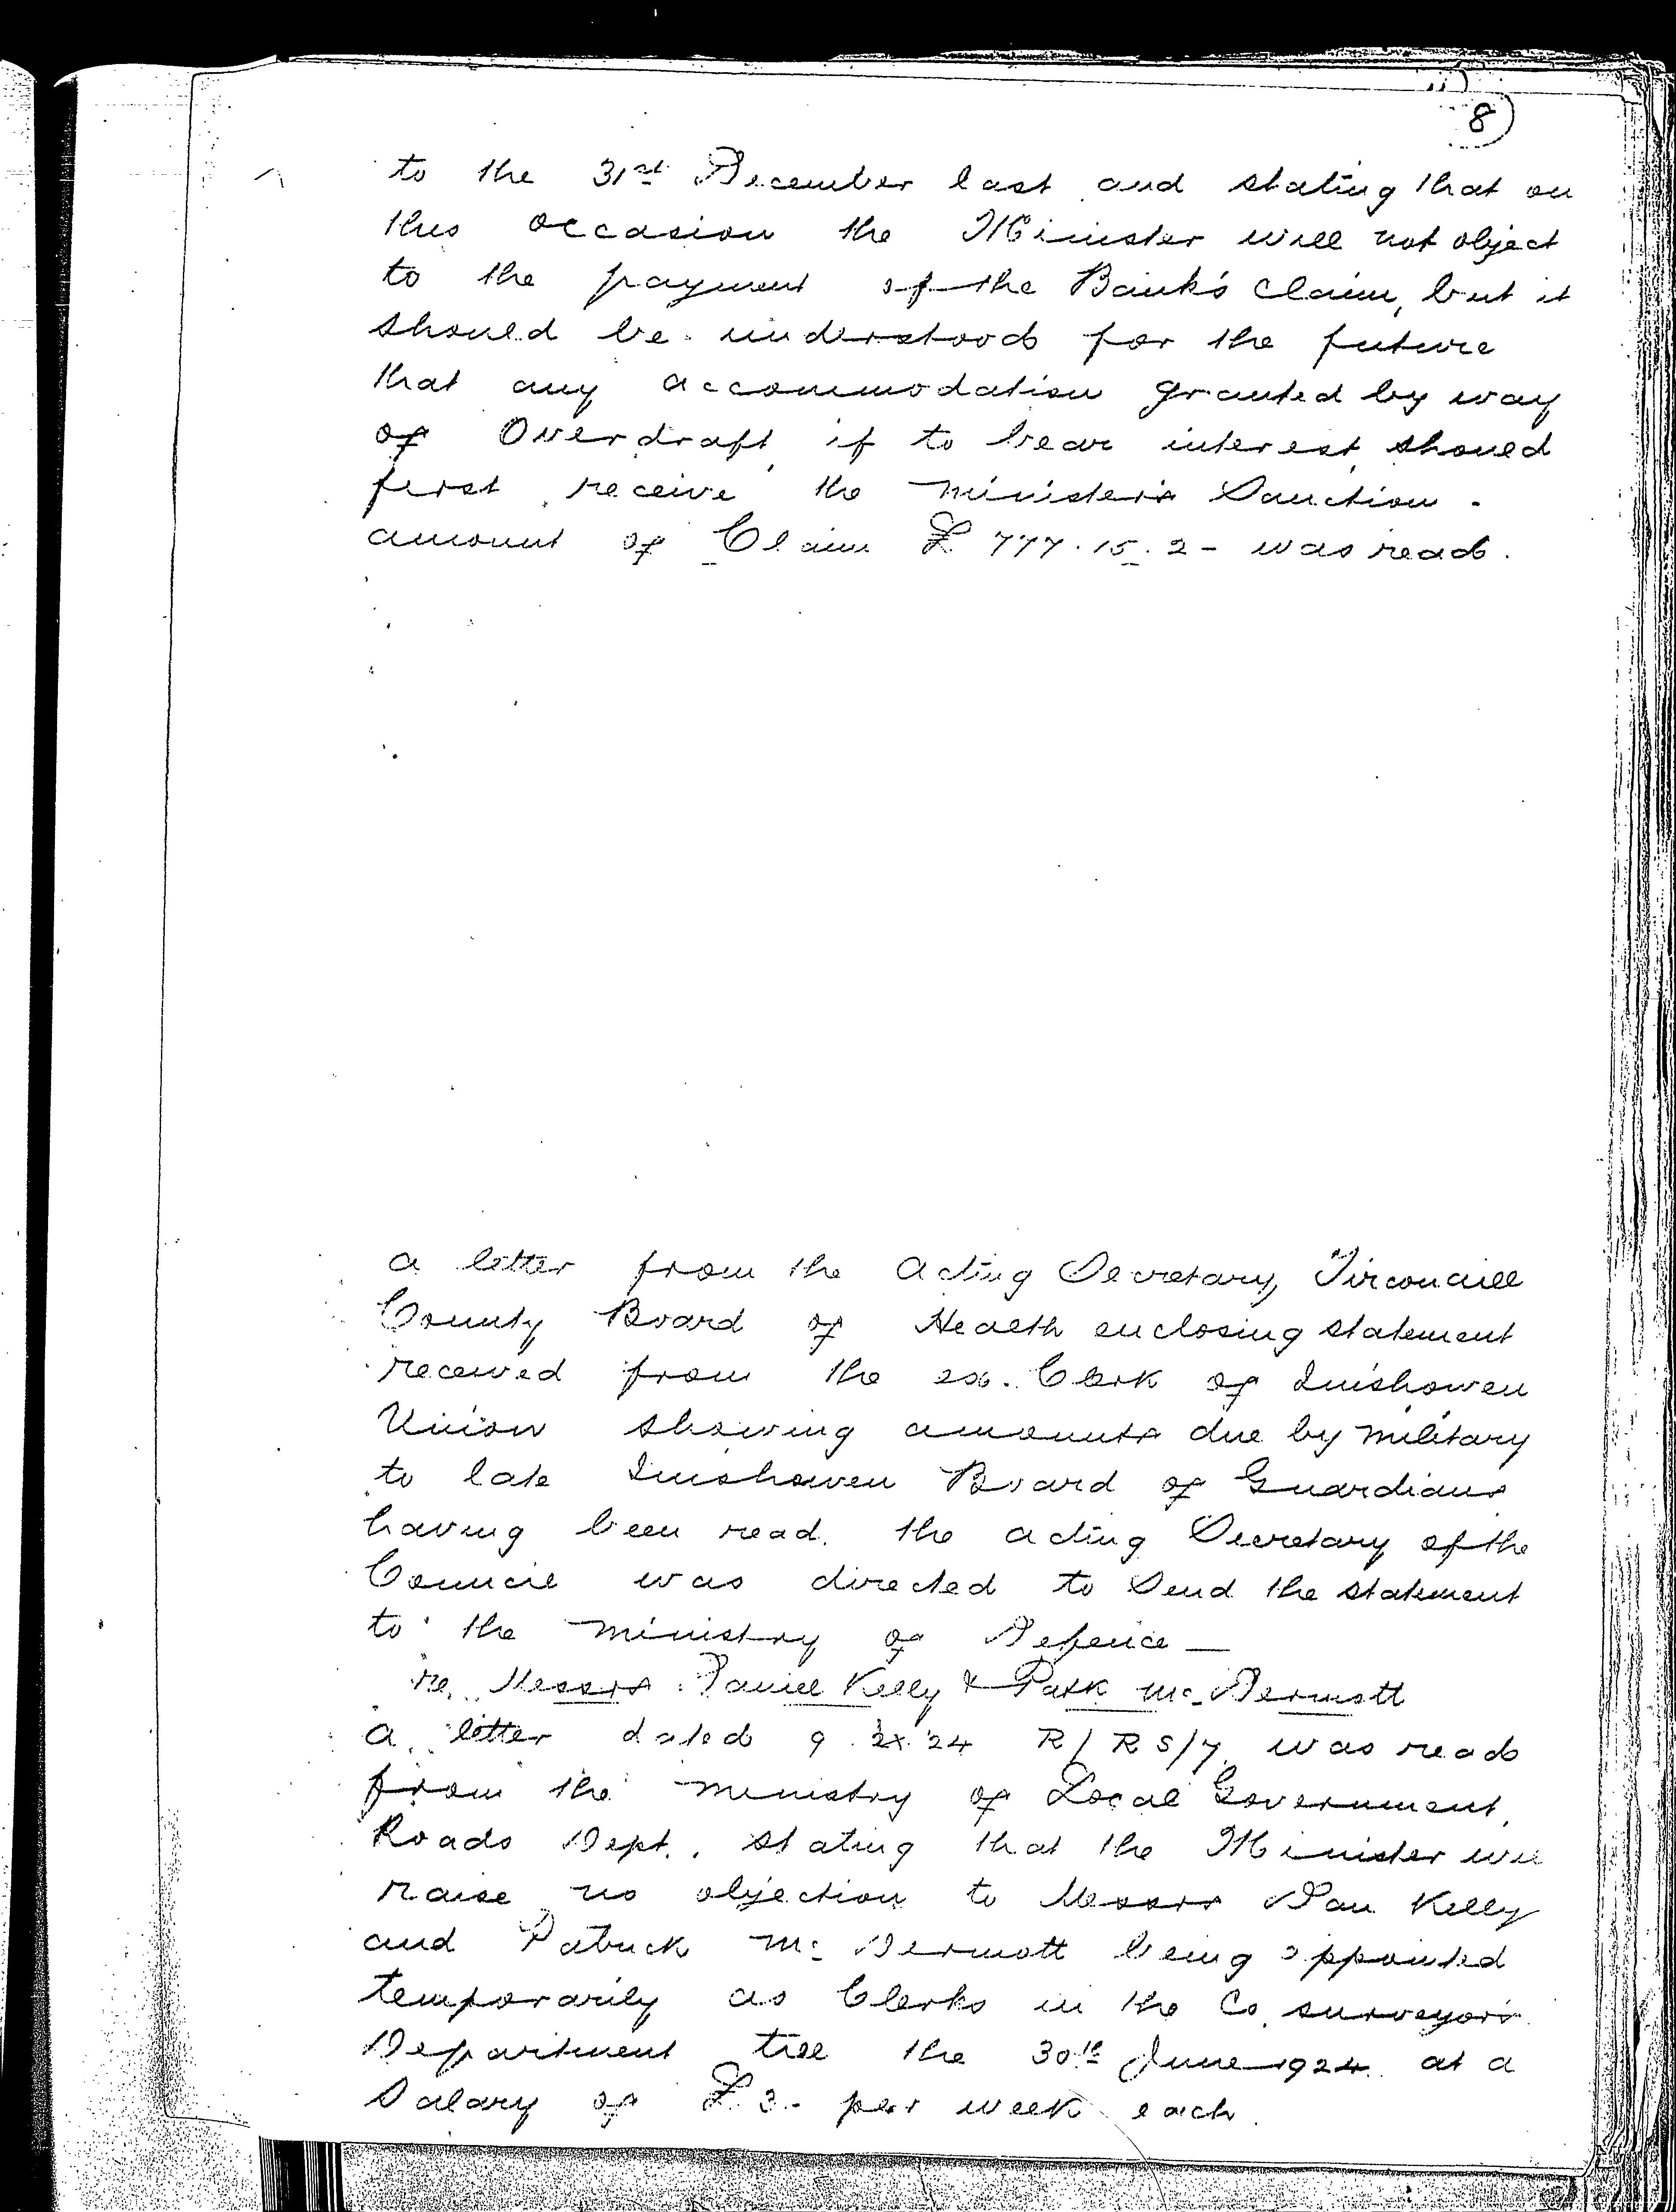 8)
to the 31st December last and stating that on
this occasion the Minister will not object
to the payment of the Bank's Claim, but it
should be understood for the future
that any accommodation granted by way
of Overdraft, if to bear interest, should
first receive the Minister's Sanction.
amount of Claim £777.15.2 - was read.
a letter from the Acting Secretary, Tirconaill
County Board of Health enclosing statement
received from the ex. Clerk of Inishowen
Union showing amounts due by military
to late Inishowen Board of Guardians
having been read. the acting Secretary of the
Council was directed to Send the statement
to the Ministry of Defence —
re. Messrs. Daniel Kelly & Patk McDermott
a letter dated 9 24 R/RS/7 was read
from the Ministry of Local Government,
Roads Dept., stating that the Minister will
raise no objection to Messrs Dan Kelly
and Patrick McDermott being appointed
temporarily as Clerks in the Co. surveyor's
Department till the 30th June 1924 at a
Salary of £3.- per week each.